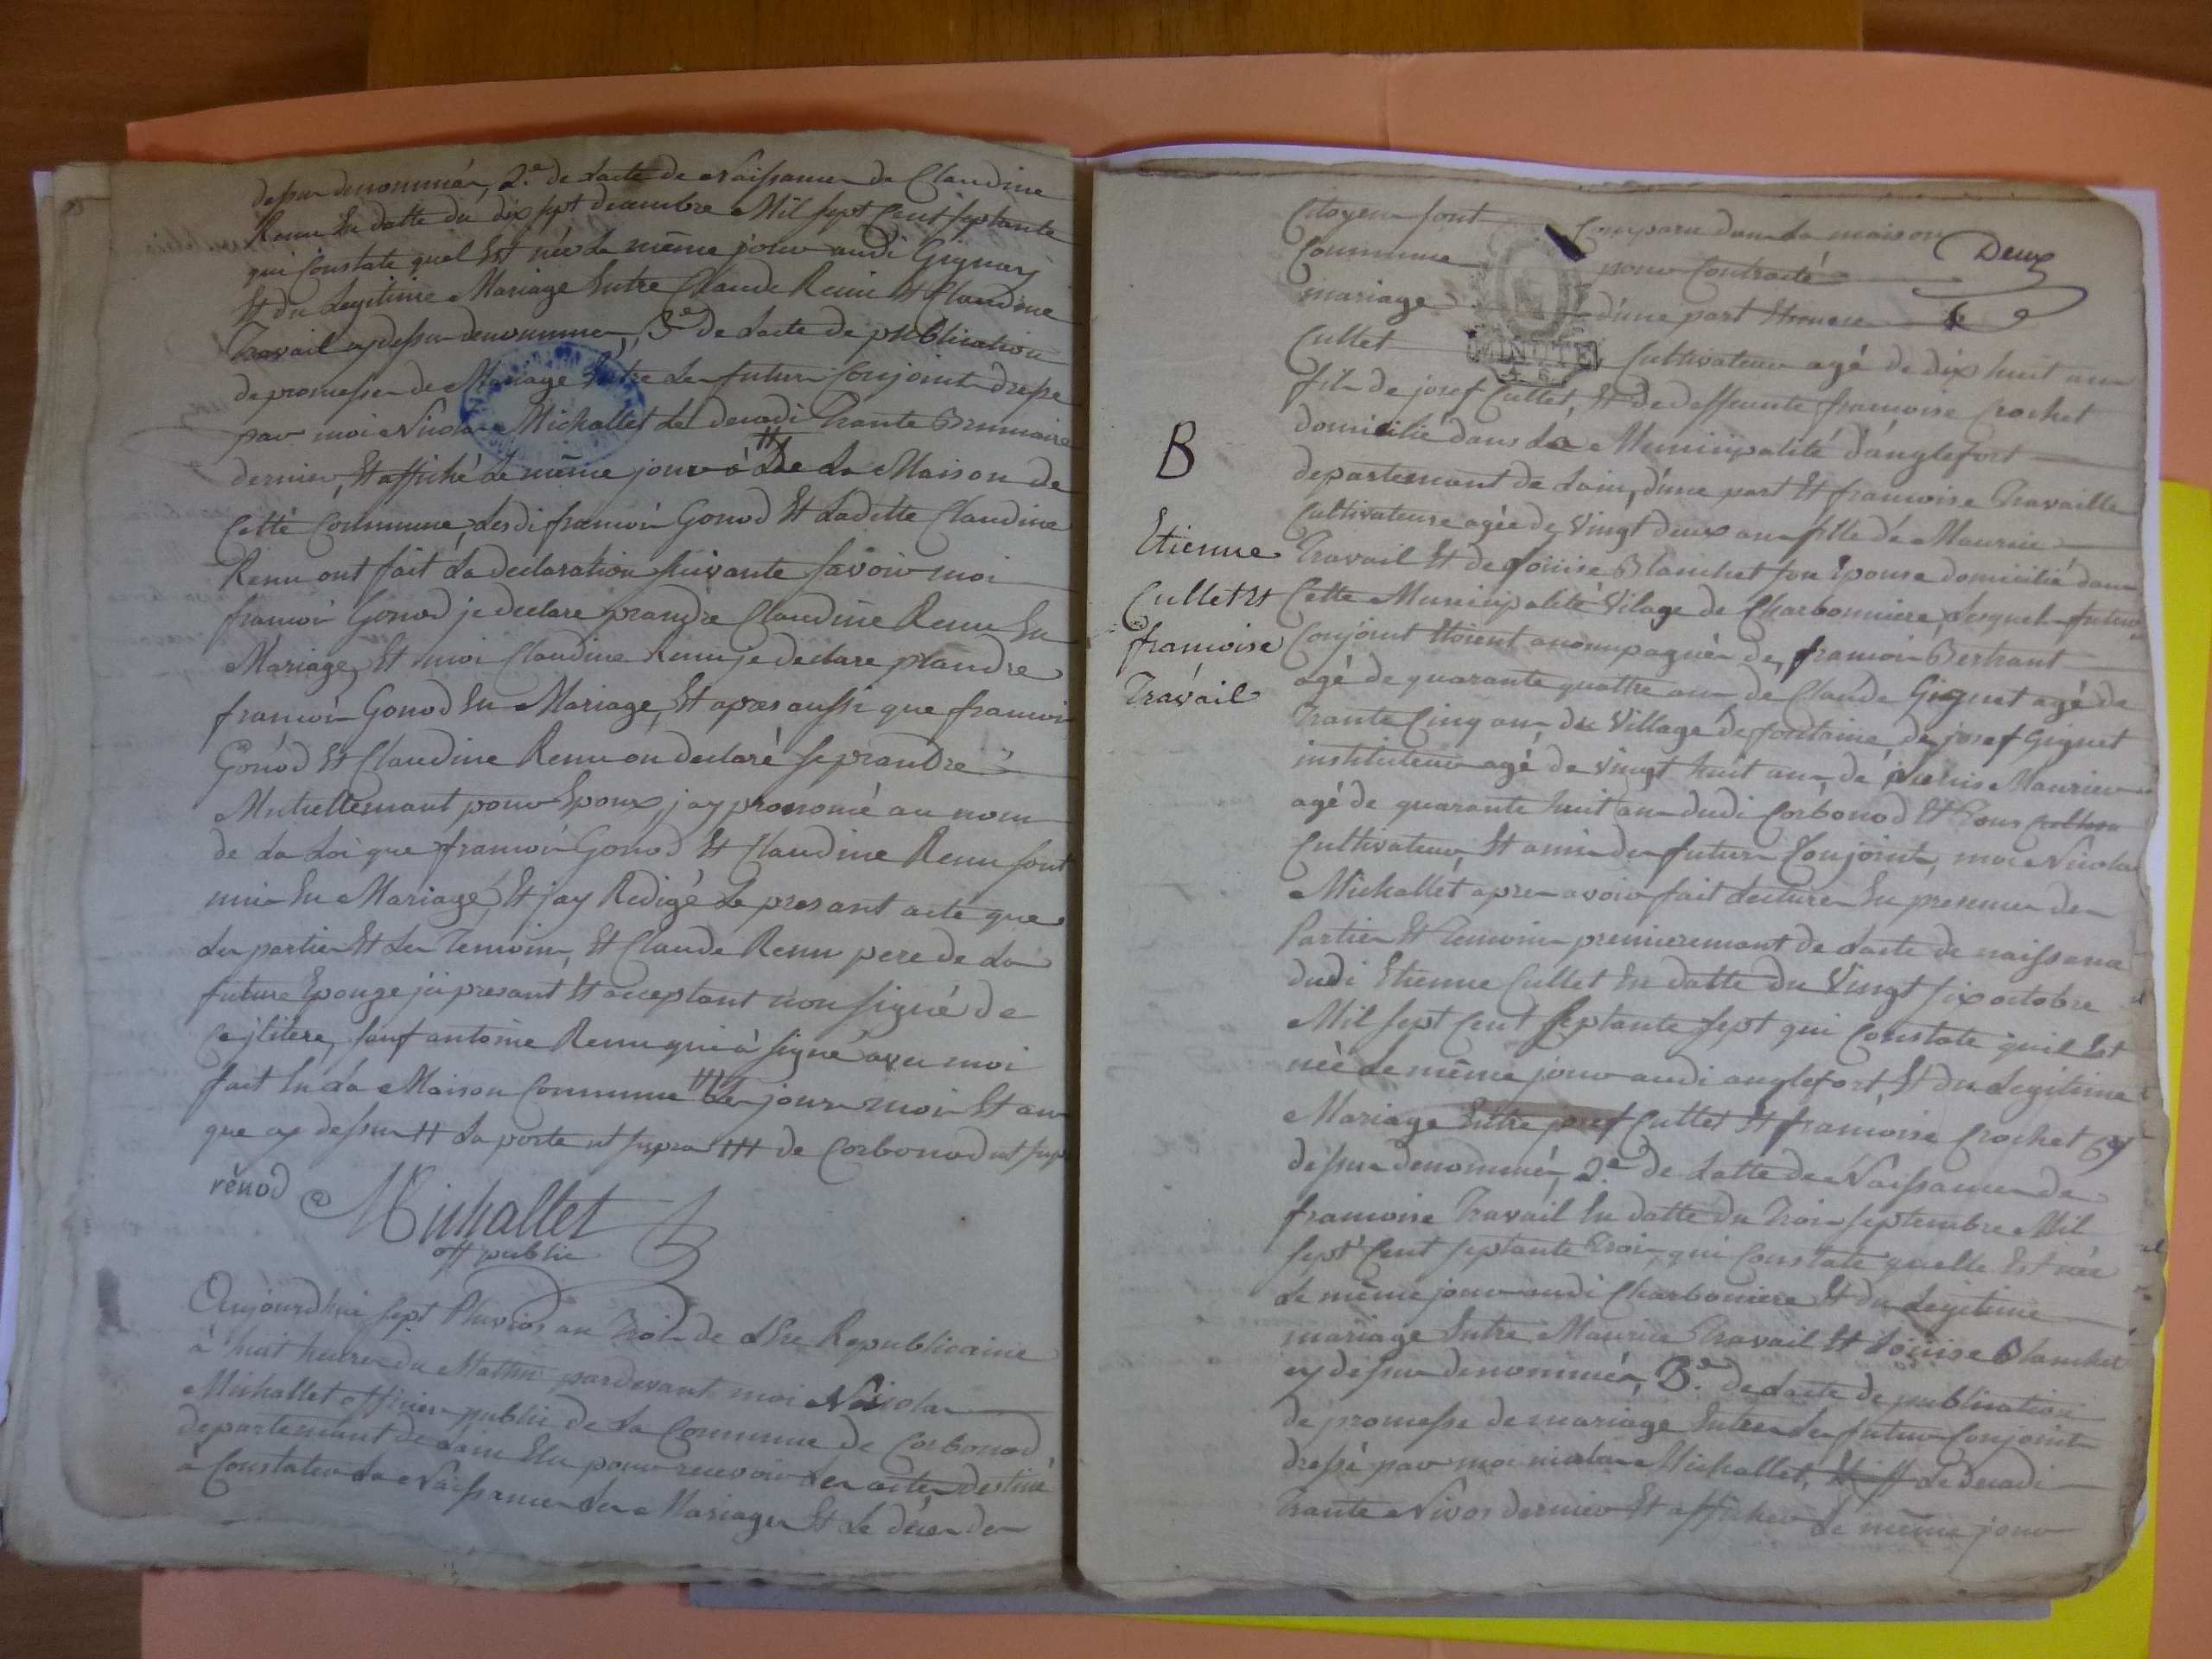 dessus denommés, 2.e de lacte de Naissance de Claudine
Renu En datte du dix sept decembre Mil sept Cent septante
qui Constate quel Est née le même jour audi Gignez
Et du Legitime Mariage Entre Claude Renu Et Claudine
Travail cy dessus denommer, 3e de lacte de publication
de promesse de Mariage Entre les futurs Conjoint dresse
par moi Nicolas Michallet Le decadi Trante Brumaire
dernier, Et affiché le même jour à ## de La Maison de
Cette Commune, Lesdi francois Gonod Et Laditte Claudine
Renu ont fait La declaration suivante savoir moi
francois Gonod je declare prandre Claudine Renu En
Mariage, Et moi Claudine Renu je declare prandre
francois Gonod En Mariage, Et apres aussi que francois
Gonod Et Claudine Renu on declaré se prandre
Mutuellemant pour Epoux, jay prononcé au nom
de La Loi que francois Gonod Et Claudine Renu sont
unis En Mariage, Et jay Redigé Le presant acte que
les parties Et les Temoins, Et Claude Renu pere de La
future Epouze ici presant Et acceptant n'on signé de
ce jlitere, sauf antoine Renu qui à signé avec moi
fait En La Maison Commune ### Les jours mois Et an
que cy dessus ## La porte ut supra ### de Corbonod ut sup
rēnod Michallet
off public
Aujourdhui sept Pluvios an Trois de Lhre Republicaine
à huit heures du Mattin pardevant moi Nicolas
Michallet officier public de La Commune de Corbonod
departemant de Lain Elu pour recevoir Les actes destiné
à Constater La Naissances Les Mariages Et Le décès des
Citoyens sont Comparu dans La maison
Deux
Commune pour Contracté
mariage d'une part Etienne
MINUTE
Cullet Cultivateur agé de dix huit ans
fils de josef Cullet, Et de deffeunte francoise Crochet
domicilié dans La Municipalité d'anglefort
B
departemant de Lain, d'une part Et francoise Travaille
Cultivateuse agée de Vingt deux ans fille de Maurice
Etienne
Cullet Et
francoise
Travail
Travail Et de Loüise Blanchet son Epouse domicilié dans
Cette Municipalité Vilage de Charbonniere, Lesquels futurs
Conjoint Etoient accompagnés de, francois Bertrant
agé de quarante quattre ans de Claude Gignet agé de
Trante Cinq ans, du Village de fontaine, de josef Gignet
instituteur agé de vingt huit ans, de Maurier
agé de quarante huit ans dudi Corbonod Et Tous
Cultivateur, Et amis des futurs Conjoint, moi Nicolas
Michallet apres avoir fait Lecture En presence des
Parties Et Temoins premieremant de Lacte de naissance
dudi Etienne Cullet En datte du Vingt six octobre
Mil sept Cent septante sept qui Constate quil Est
néé Le même jour audi anglefort, Et du Legitime
Mariage Entre josef Cullet Et francoise Crochet cy
dessus denommés, 2.e de Latte de Naissance de
francoise Travail En datte du Trois septembre Mil
sept Cent septante Trois, qui Constate quelle Est née
Le même jour audi Charboniere Et du Legitime
mariage Entre Maurice Travail Et Loüise Blanchet
cy dessus denommés, 3.e de Lacte de publication
de promesse de mariage Entre Les futurs Conjoint
dressé par moi nicolas Michallet, Le decadi
Trante Nivos dernier Et afficher Le même jour